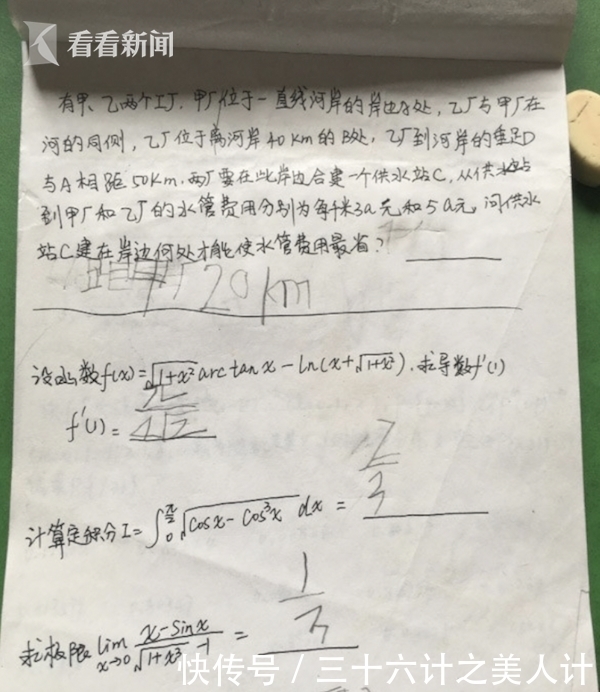 看看新闻
有甲、乙两个工厂，甲厂位于一直线河岸的岸边A处，乙厂与甲厂在
河的同侧，乙厂位于离河岸40km的B处，乙厂到河岸的垂足D
与A相距50km，两厂要在此岸边合建一个供水站C，从供水站
到甲厂和乙厂的水管费用分别为每千米3a元和5a元，问供水
站C建在岸边何处才能使水管费用最省？
20km
设函数f(x)=√(1+x²) arctanx-ln(x+√(1+x²))，求导数f'(1)
f'(1)=π/4√2
计算定积分I=∫₀^(π/2) √(cosx-cos³x) dx = 2/3
求极限 lim x→0 (x-sinx)/(√(1+x³)-1) = 1/3
快传号/三十六计之美人计